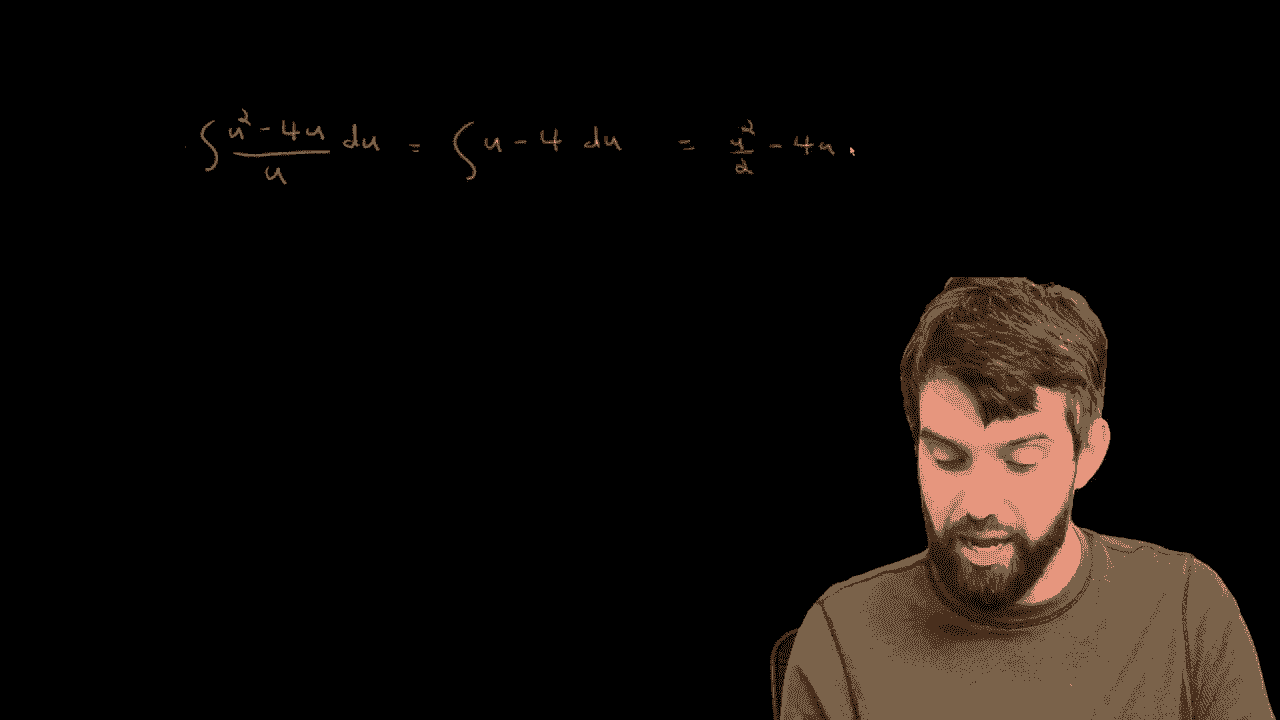 ∫ (u² - 4u)/u du = ∫ u - 4 du = u²/2 - 4u